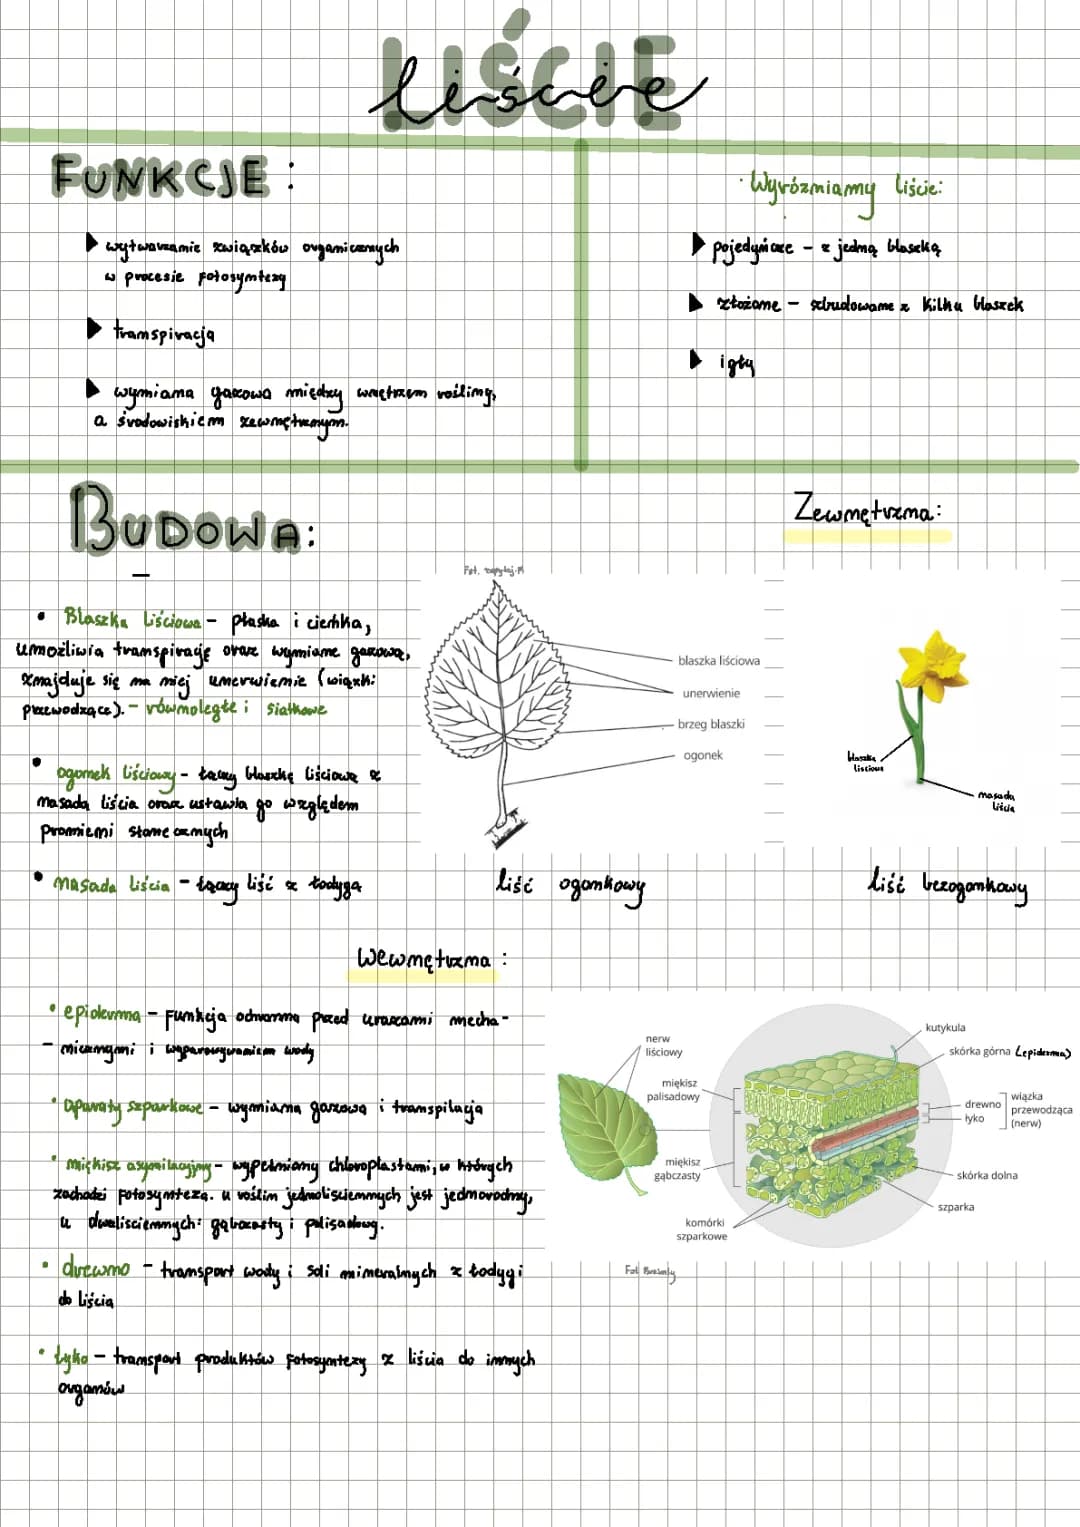 LIŚCIE
liście
FUNKCJE:
wytwarzanie związków organicznych
w procesie fotosyntezy
transpiracja
wymiana gazowa między wnętrzem rośliny,
a środowiskiem zewnętrznym.
Wyróżniamy liście:
pojedyńcze - z jedną blaszką
złożone - zbudowane z kilku blaszek
igły
BUDOWA:
Zewnętrzna:
• Blaszka liściowa - płaska i cienka,
umożliwia transpirację oraz wymianę gazową,
znajduje się na niej unerwienie (wiązki
przewodzące). - równoległe i siatkowe
• ogonek liściowy - łączy blaszkę liściową z
nasadą liścia oraz ustawia go względem
promieni słonecznych
• nasada liścia - łączy liść z łodygą
Fot. zapytaj.
blaszka liściowa
unerwienie
brzeg blaszki
ogonek
liść ogonkowy
blaszka
liściowa
nasada
liścia
liść bezogonkowy
Wewnętrzna:
• epiderma - funkcja ochronna przed urazami mecha-
- nicznymi i wyparowywaniem wody
• aparaty szparkowe - wymiana gazowa i transpilacja
• miękisz asymilacyjny - wypełniony chloroplastami, w których
zachodzi fotosynteza. u roślin jednoliściennych jest jednorodny,
u dwuliściennych: gąbczasty i palisadowy.
• drewno - transport wody i soli mineralnych z łodygi
do liścia
• łyko - transport produktów fotosyntezy z liścia do innych
organów
nerw
liściowy
miękisz
palisadowy
miękisz
gąbczasty
komórki
szparkowe
kutykula
skórka górna (epiderma)
drewno
łyko
wiązka
przewodząca
(nerw)
skórka dolna
szparka
Fot